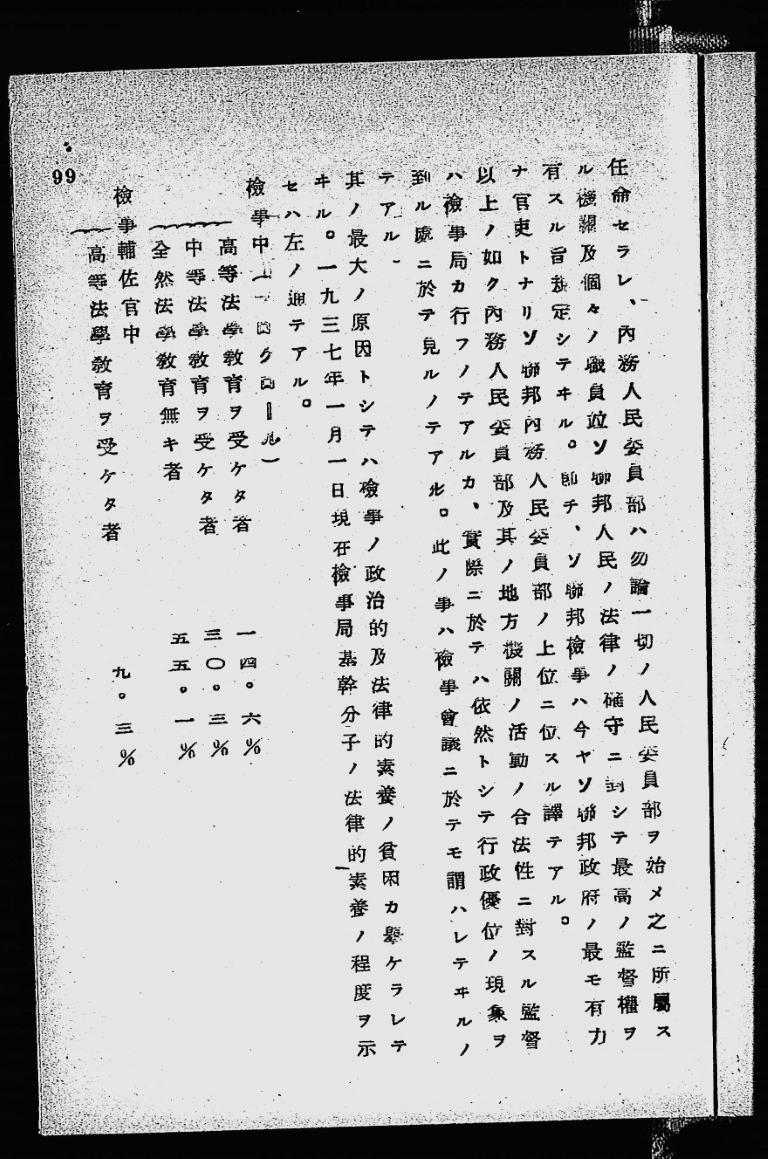 任命セラレ、內務人民委員部ハ勿論一切ノ人民委員部ヲ始メ之ニ所屬ス
ル機關及個々ノ職員竝ソ聯邦人民ノ法律ノ確守ニ對シテ最高ノ監督權ヲ
有スル旨規定シテヰル。卽チ、ソ聯邦檢事ハ今ヤソ聯邦政府ノ最モ有力
ナ官吏トナリソ聯邦內務人民委員部ノ上位ニ位スル譯テアル。
以上ノ如ク內務人民委員部及其ノ地方機關ノ活動ノ合法性ニ對スル監督
ハ檢事局カ行フノテアルカ、實際ニ於テハ依然トシテ行政優位ノ現象ヲ
到ル處ニ於テ見ルノテアル。此ノ事ハ檢事會議ニ於テモ謂ハレテヰルノ
テアル
其ノ最大ノ原因トシテハ檢事ノ政治的及法律的素養ノ貧困カ擧ケラレテ
ヰル。一九三七年一月一日現在檢事局基幹分子ノ法律的素養ノ程度ヲ示
セハ左ノ通テアル。
檢事中
高等法學敎育ヲ受ケタ者 一四。六%
中等法學敎育ヲ受ケタ者 三〇。三%
全然法學敎育無キ者 五五。一%
檢事輔佐官中
高等法學敎育ヲ受ケタ者 九。三%
99